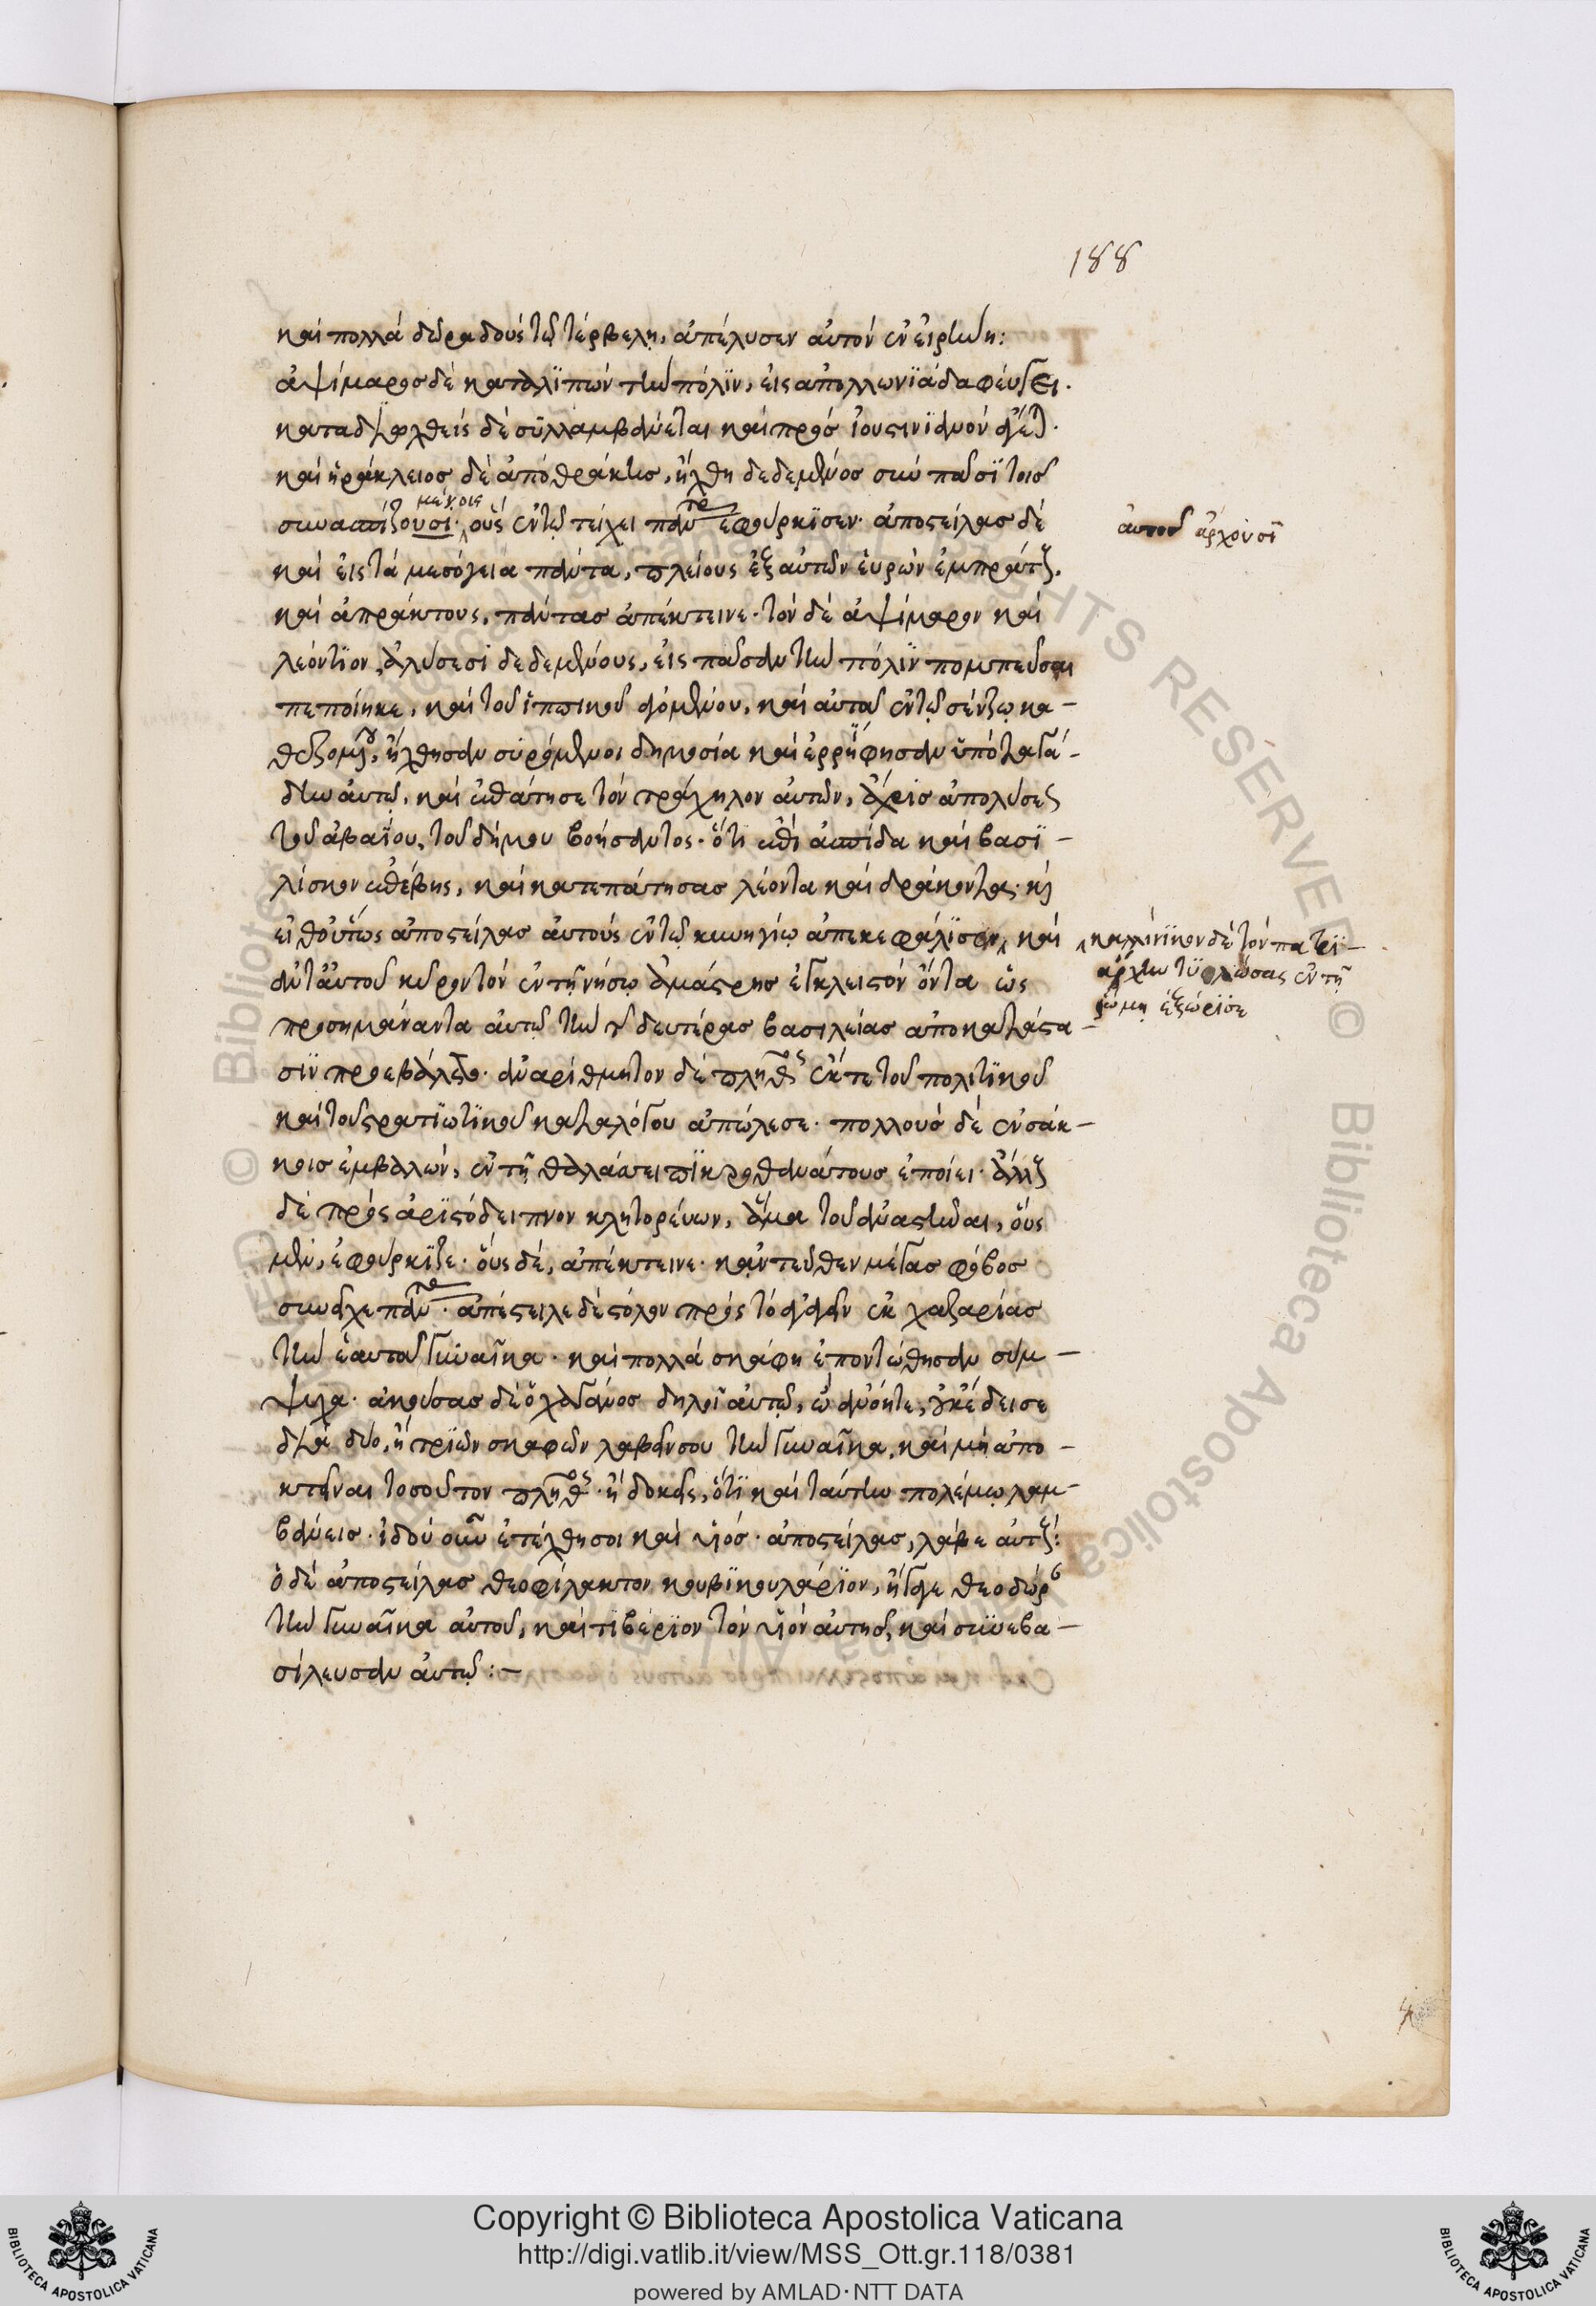 188
καὶ πολλὰ δῶρα δοὺς τῷ τέρβελῃ, ἀπέλυσεν αὐτὸν ἐν εἰρήνῃ:
ἀψίμαρος δὲ καταλϊπὼν τὴν πόλϊν, εἰς ἀπολλωνϊάδα φεύγει.
καταδιωχθεὶς δὲ συλλαμβάνεται καὶ πρὸς ἰουστινϊανὸν ἄγεται.
καὶ ἡράκλειος δὲ ἀπὸ θράκης, ἤχθη δεδεμένος σὺν πᾶσϊ τοῖς
μένοις
συνασπίζουσι· οὓς ἐν τῷ τείχει πάντας ἐφούρκϊσεν· ἀποστείλας δὲ
αὐτοῦ ἄρχουσϊ
καὶ εἰς τὰ μεσόγεια πάντα, πλείους ἐξ αὐτῶν εὑρὼν ἐμπράκτους,
καὶ ἀπράκτους, πάντας ἀπέκτεινε· τὸν δὲ ἀψίμαρον καὶ
λεόντϊον ἁλύσεσι δεδεμένους, εἰς πᾶσαν τὴν πόλϊν πομπεῦσαι
πεποίηκε, καὶ τοῦ ἱππικοῦ ἀγομένου, καὶ αὐτοῦ ἐν τῷ σένζῳ κα-
θεζομένου, ἤχθησαν συρόμενοι δημοσία καὶ ἐρρΐφησαν ὑπὸ πα-
αὐτῷ, καὶ ἐπάτησε τὸν τράχηλον αὐτῶν, ἄχρις ἀπολύσεως
τοῦ βαΐου, τοῦ δήμου βοήσαντος· ὅτι ἐπὶ ἀσπίδα καὶ βασϊ-
λίσκον ἐπέβης, καὶ κατεπάτησας λέοντα καὶ δράκοντα· καὶ
εἶθ' οὕτως ἀποστείλας αὐτοὺς ἐν τῷ κυνηγίῳ ἀπεκεφάλϊσεν, καὶ
καλλίνϊκον δὲ τὸν πατρϊ-
άρχην τϋφλώσας ἐν τῇ
ῥώμῃ ἐξώρϊσε
ἀντ' αὐτοῦ κῦρον τὸν ἐν τῇ νήσῳ ἀμάστρης ἔγκλειστον ὄντα ὡς
προσημάναντα αὐτῷ τὴν τῆς δευτέρας βασιλείας ἀποκατάστα-
σϊν προεβάλετο· ἀναρίθμητον δὲ πλῆθος ἔκ τε τοῦ πολιτϊκοῦ
καὶ τοῦ στρατϊωτϊκοῦ καταλόγου ἀπώλεσε· πολλοὺς δὲ ἐν σάκ-
κοις ἐμβαλὼν, ἐν τῇ θαλάσσει πϊκροθανάτους ἐποίει· ἄλλους
δὲ πρὸς ἀρϊστόδειπνον κλητορεύων, ἅμα τοῦ ἀναστῆναι, οὓς
μὲν, ἐφούρκϊζε· οὓς δὲ, ἀπέκτεινε· κἀντεῦθεν μέγας φόβος
συνεῖχε πάντας· ἀπέστειλε δὲ στόλον πρὸς τὸ ἀγαγεῖν ἐκ χαζαρίας
τὴν ἑαυτοῦ γυναῖκα· καὶ πολλὰ σκάφη ἐποντώθησαν σύμ-
ψυχα· ἀκούσας δὲ ὁ χαγάνος δηλοῖ αὐτῷ, ὦ ἀνόητε, οὐκ ἔδει σε
διὰ δύο, ἢ τρϊῶν σκαφῶν λαβεῖν σου τὴν γυναῖκα, καὶ μὴ ἀπο-
κτεῖναι τοσοῦτον πλῆθος· ἢ δοκεῖς, ὅτϊ καὶ ταύτην πολέμῳ λαμ-
βάνεις· ἰδοὺ οὖν ἐτέχθη σοι καὶ υἱός· ἀποστείλας, λάβε αὐτούς:
ὁ δὲ ἀποστείλας θεοφίλακτον κουβϊκουλάρϊον, ἤγαγε θεοδώραν
τὴν γυναῖκα αὐτοῦ, καὶ τϊβέρϊον τὸν υἱὸν αὐτῆς, καὶ συνεβα-
σίλευσαν αὐτῷ:-
Copyright © Biblioteca Apostolica Vaticana
http://digi.vatlib.it/view/MSS_Ott.gr.118/0381
powered by AMLAD·NTT DATA
BIBLIOTECA APOSTOLICA VATICANA
BIBLIOTECA APOSTOLICA VATICANA